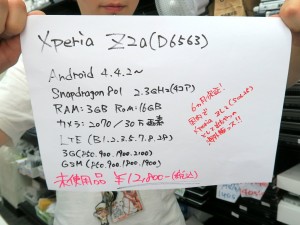 Xperia Z2a(D6563)
Android 4.4.2~
Snapdragon801 2.3GHz(4コア)
RAM:3GB Rom:16GB
カメラ 2070/30万画素
LTE (B1.2.3.5.7.8.28)
3G(850.900.1900.2100)
GSM(850.900.1800.1900)
未使用品 ¥12,800-(税込)
6ヵ月保証!
国内で
Xperia ZL2
として